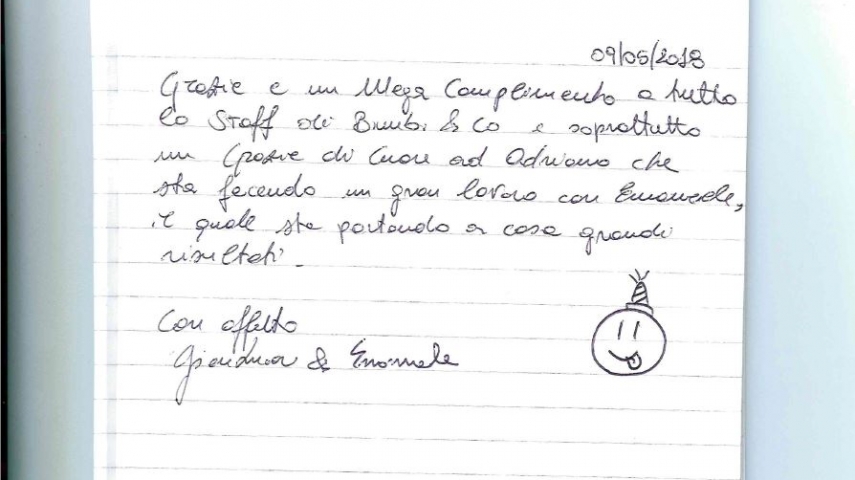 09/05/2018
Grazie e un Mega Complimento a tutto
lo Staff di Bimbi & Co e soprattutto
un Grazie di Cuore ad Adriano che
sta facendo un gran lavoro con Emanuele,
il quale sta portando a casa grandi
risultati.
Con affetto
Gianluca & Emanuele